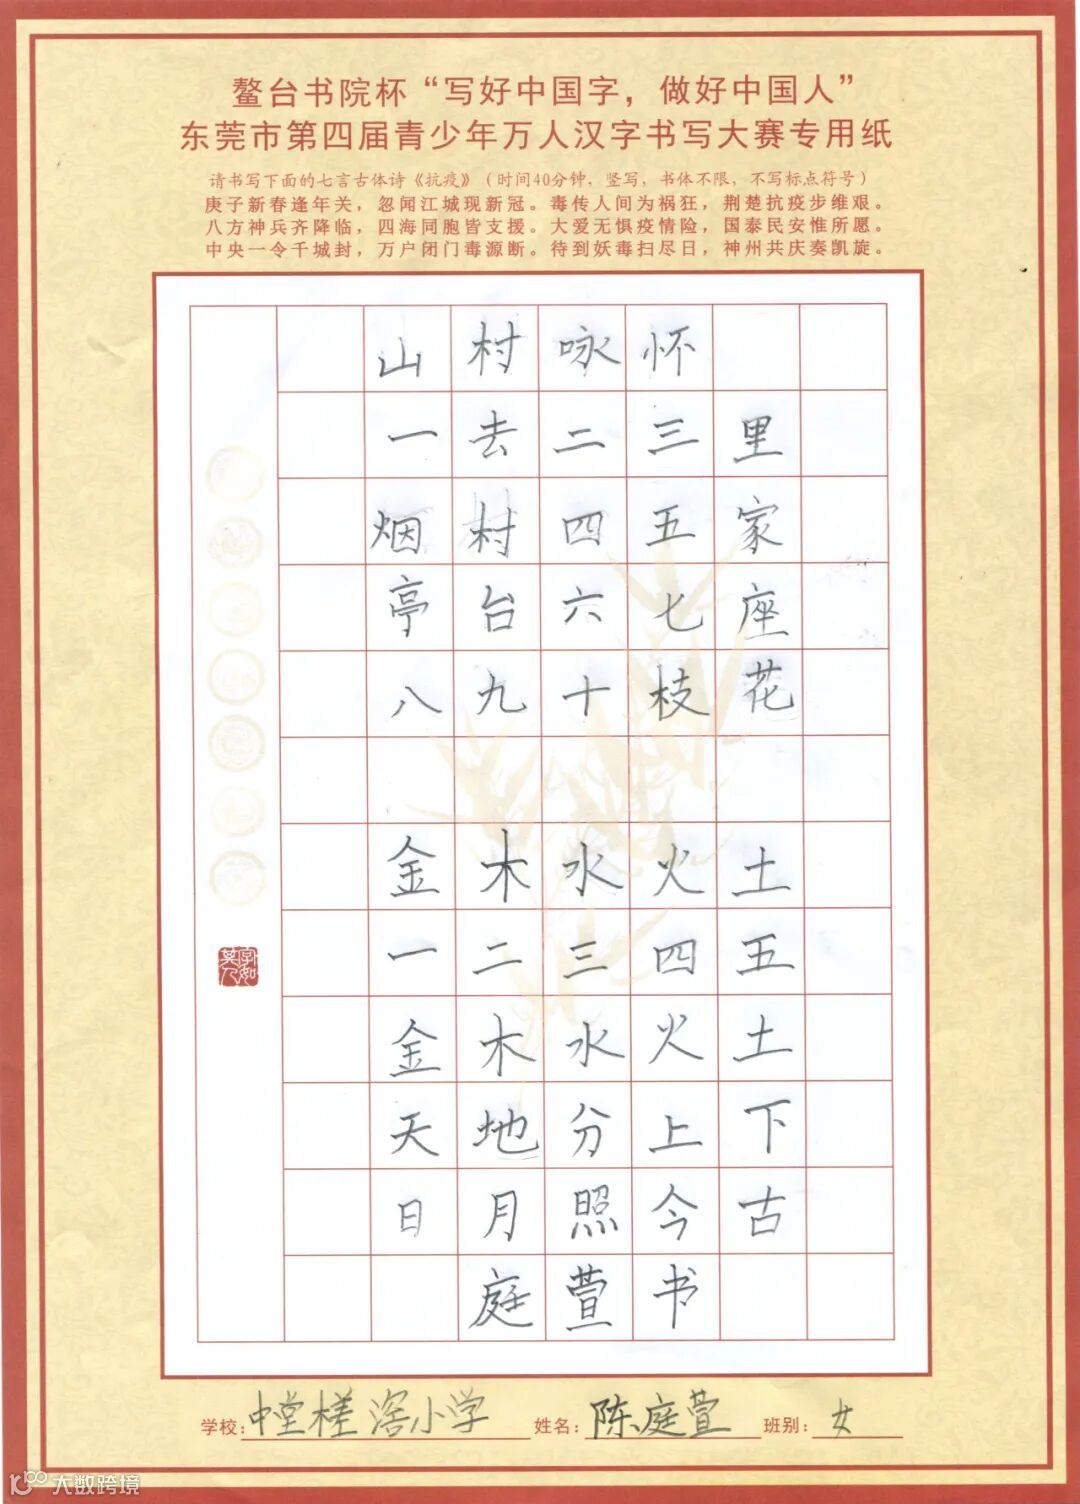 鳌台书院杯“写好中国字，做好中国人”
东莞市第四届青少年万人汉字书写大赛专用纸
请书写下面的七言古体诗《抗疫》（时间40分钟，竖写，书体不限，不写标点符号）
庚子新春逢年关，忽闻江城现新冠。毒传人间为祸狂，荆楚抗疫步维艰。
八方神兵齐降临，四海同胞皆支援。大爱无惧疫情险，国泰民安惟所愿。
中央一令千城封，万户闭门毒源断。待到妖毒扫尽日，神州共庆奏凯旋。
山村咏怀
一去二三里
烟村四五家
亭台六七座
八九十枝花
金木水火土
一二三四五
金木水火土
天地分上下
日月照今古
庭萱书
字如其人
学校：中堂槎滘小学 姓名：陈庭萱 班别：女
大数跨境